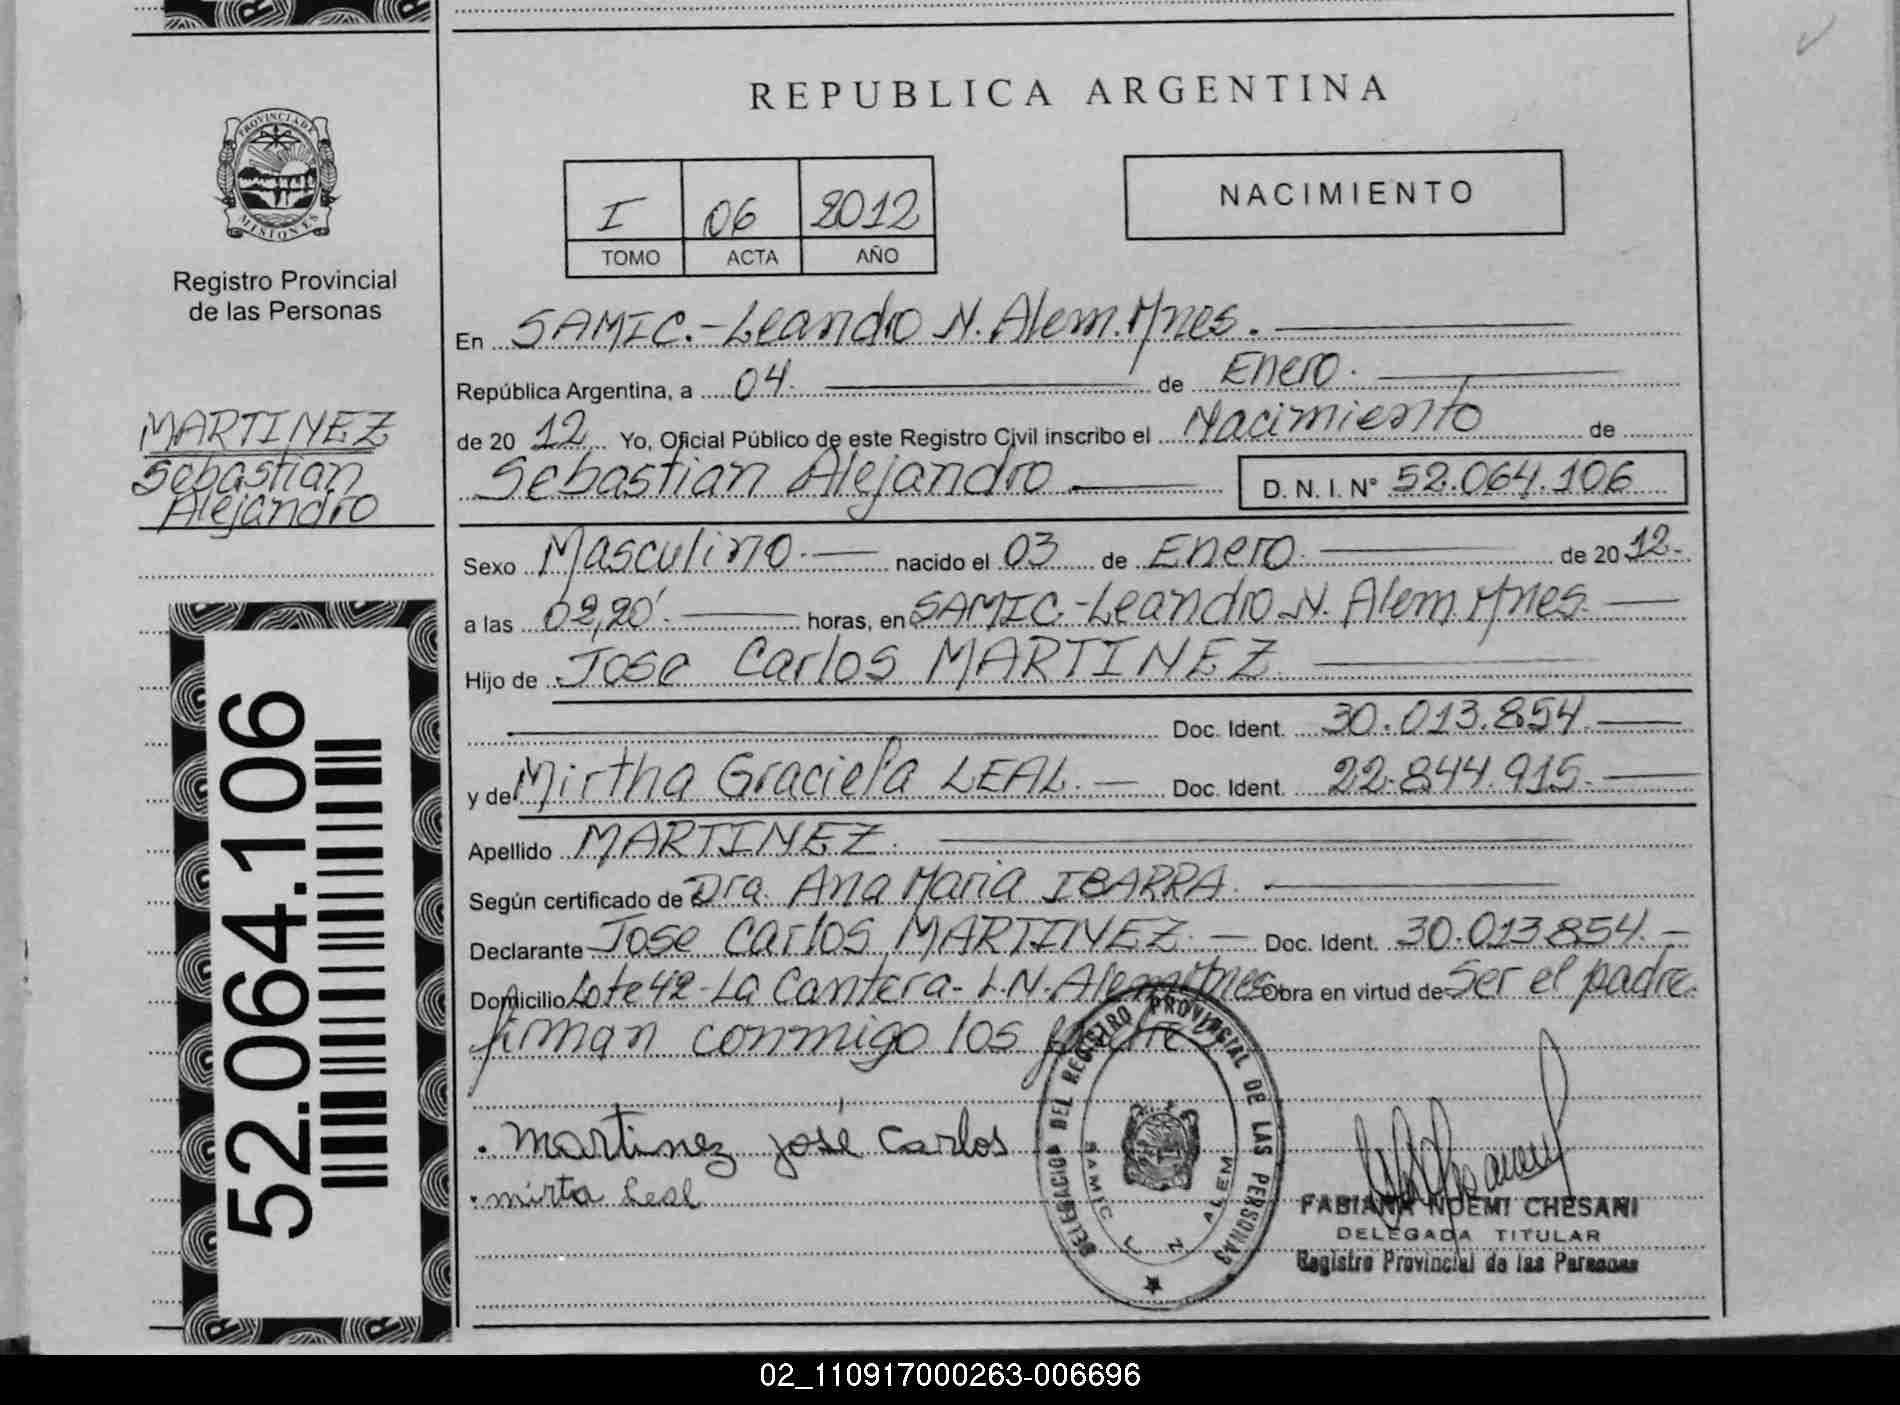 REPUBLICA ARGENTINA
PROVINCIA DE
MISIONES
Registro Provincial
de las Personas
I 06 2012
TOMO ACTA AÑO
NACIMIENTO
En SAMIC.-Leandro N. Alem. Mnes.
República Argentina, a 04. de Enero.
de 20 12 Yo, Oficial Público de este Registro Civil inscribo el Nacimiento de
Sebastian Alejandro D. N. I. N° 52.064.106
MARTINEZ
Sebastian
Alejandro
Sexo Masculino. nacido el 03 de Enero. de 20 12.
a las 02,20'. horas, en SAMIC.-Leandro N. Alem. Mnes.
Hijo de Jose Carlos MARTINEZ
Doc. Ident. 30.013.854.
y de Mirtha Graciela LEAL. Doc. Ident. 22.844.915.
Apellido MARTINEZ.
Según certificado de Dra. Ana Maria IBARRA.
Declarante Jose Carlos MARTINEZ. Doc. Ident. 30.013.854.
Domicilio Lote 42-La Cantera-L.N.Alem.Mnes Obra en virtud de Ser el padre.
firman conmigo los
martinez josé carlos
mirta Leal
DELEGACION DEL REGISTRO PROVINCIAL DE LAS PERSONAS
SAMIC L N ALEM
FABIANA NOEMI CHESANI
DELEGADA TITULAR
Registro Provincial de las Personas
52.064.106
02_110917000263-006696